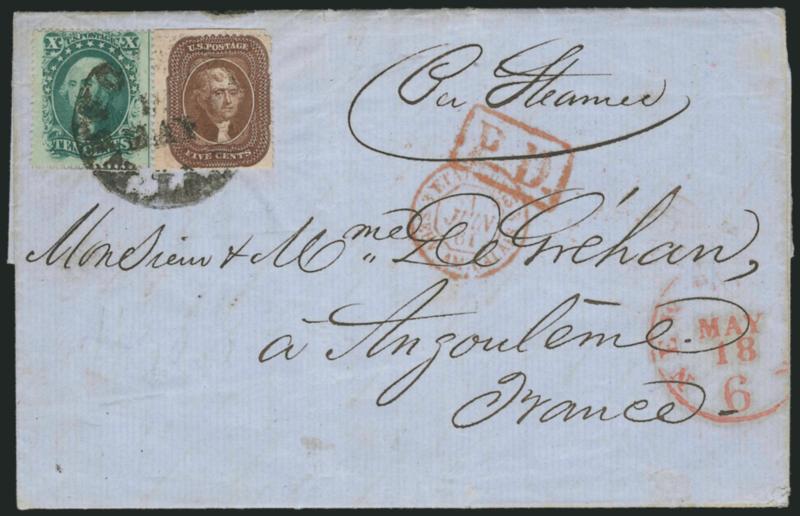 X U.S. POSTAGE X
TEN CENTS
U.S. POSTAGE
FIVE CENTS
MAY
Per Steamer
P.D.
JUIN
61
Monsieur & Mme. De Gréhan,
à Angoulême.
France.
MAY
18
6